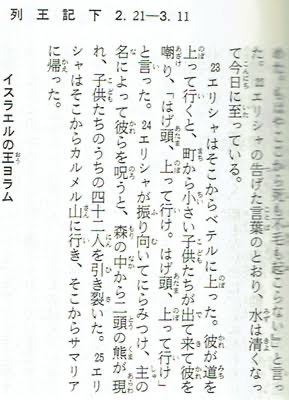 列王記下 2.21—3.11
めた。もはやここから死も不毛も起こらない』」と言っ
た。22エリシャの告げた言葉のとおり、水は清くなっ
て今日に至っている。
23エリシャはそこからベテルに上った。彼が道を
上って行くと、町から小さい子供たちが出て来て彼を
嘲り、「はげ頭、上って行け。はげ頭、上って行け」
と言った。24エリシャが振り向いてにらみつけ、主の
名によって彼らを呪うと、森の中から二頭の熊が現
れ、子供たちのうちの四十二人を引き裂いた。25エリ
シャはそこからカルメル山に行き、そこからサマリア
に帰った。
イスラエルの王ヨラム